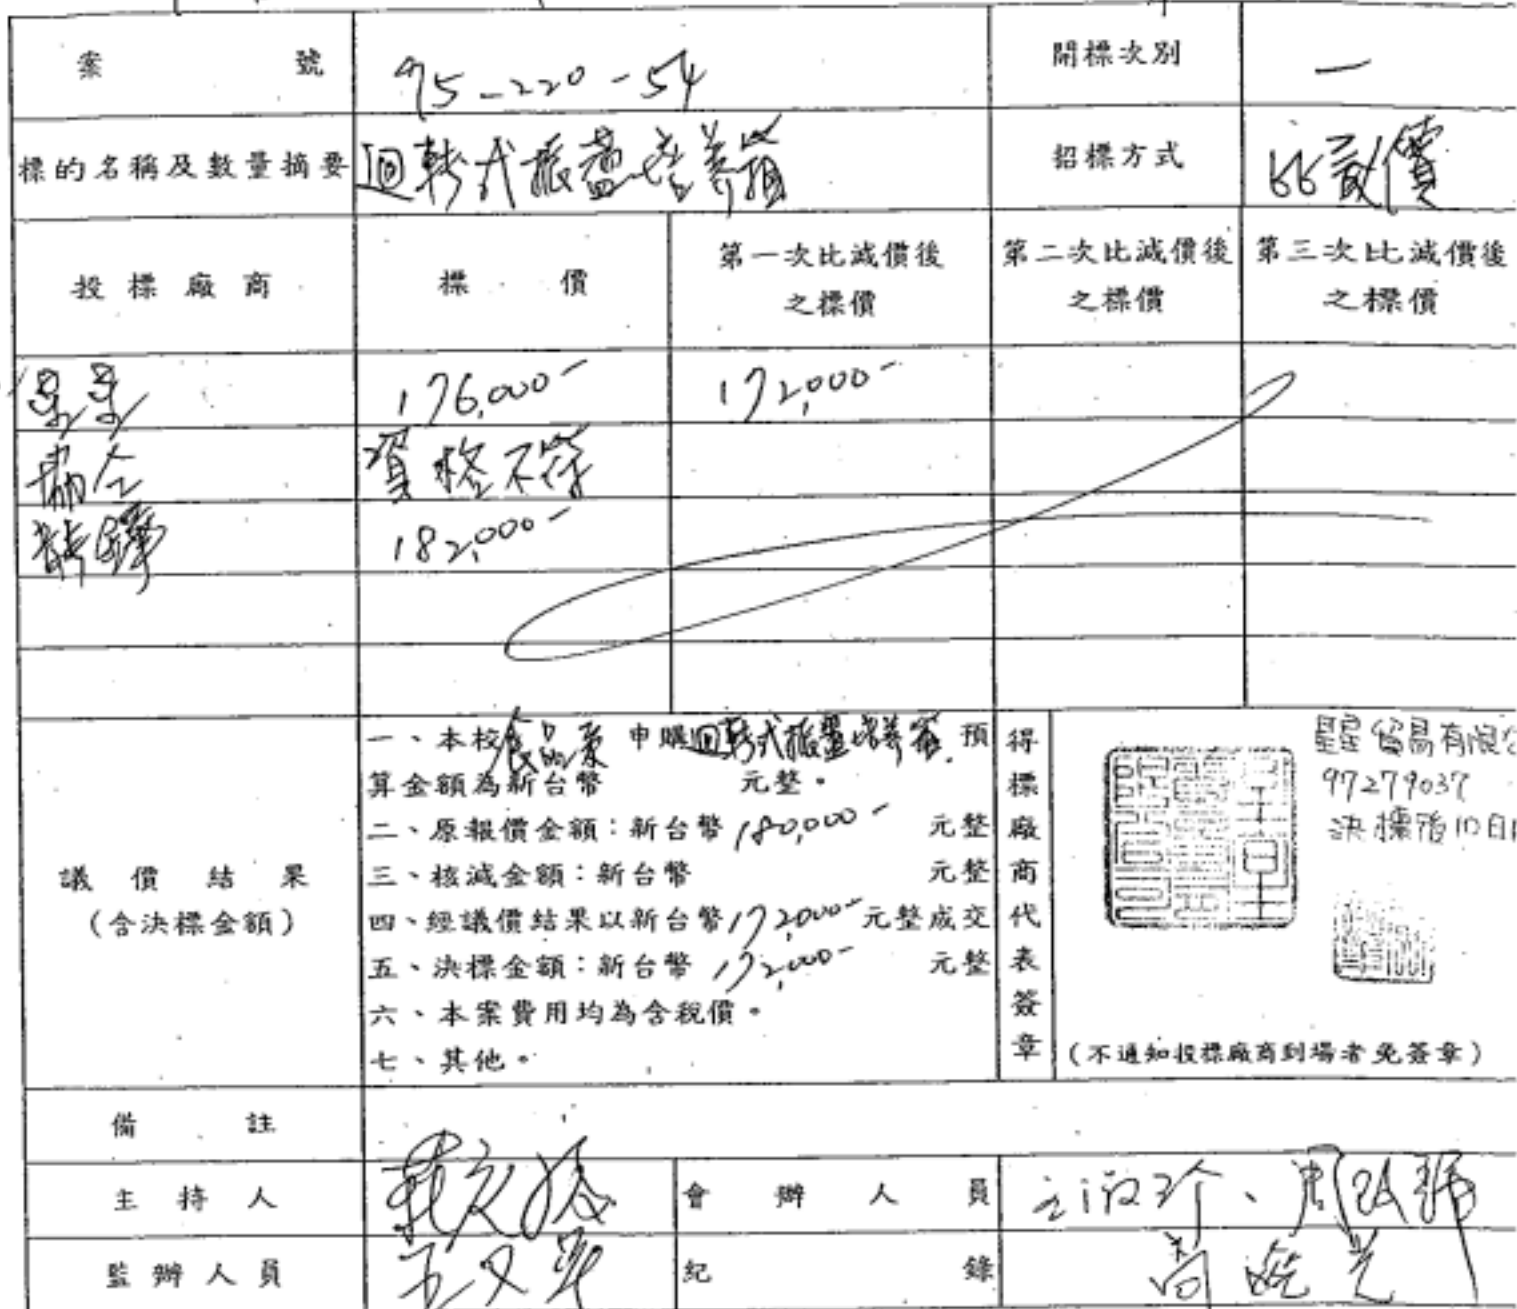 案號 95-220-54 開標次別 一
標的名稱及數量摘要 迴轉式振盪培養箱 招標方式 比價
投標廠商 標價 第一次比減價後之標價 第二次比減價後之標價 第三次比減價後之標價
星星 176,000- 172,000-
資格不符
182,000-
議價結果
(含決標金額)
一、本校食品系 申購迴轉式振盪培養箱 預
算金額為新台幣 元整。
二、原報價金額：新台幣 180,000- 元整
三、核減金額：新台幣 元整
四、經議價結果以新台幣172,000-元整成交
五、決標金額：新台幣 172,000- 元整
六、本案費用均為含稅價。
七、其他。
得標廠商代表簽章
星星貿易有限公
97279037
決標後10日
(不通知投標廠商到場者免簽章)
備註
主持人 會辦人員
監辦人員 紀錄